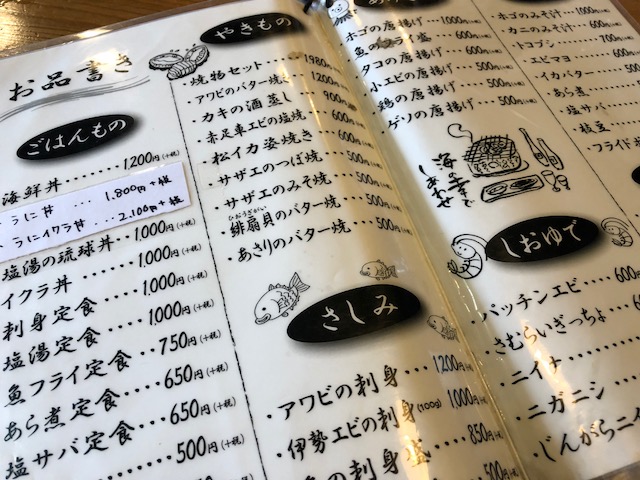 お品書き
ごはんもの
海鮮丼・・・・・・1200円(+税)
うに丼 ・・・ 1.800円+税
うにイクラ丼 ・・・ 2.100円+税
塩湯の琉球丼・・1,000円(+税)
イクラ丼・・・・・1,000円(+税)
刺身定食・・・・1,000円(+税)
塩湯定食・・・・1,000円(+税)
魚フライ定食・・・・750円(+税)
あら煮定食・・・・650円(+税)
塩サバ定食・・・・650円(+税)
500円(+税)
やきもの
・焼物セット・・・・1980円(+税)
・アワビのバター焼・・・1200円(+税)
・カキの酒蒸し・・・・900円(+税)
・赤足車エビの塩焼・・600円(+税)
・松イカ姿焼き・・・・600円(+税)
・サザエのつぼ焼・・・500円(+税)
・サザエのみそ焼・・・500円(+税)
・緋扇貝のバター焼・・500円(+税)
ひおうぎがい
・あさりのバター焼・・500円(+税)
さしみ
・アワビの刺身・・・・1200円(+税)
・伊勢エビの刺身(100g) 1,000円(+税)
の刺身盛・・・・850円(+税)
500円
・ホゴの唐揚げ・・・1,000円(+税)
・魚のフライ盛・・・600円(+税)
・タコの唐揚げ・・・500円(+税)
・小エビの唐揚げ・・500円(+税)
・鶏の唐揚げ・・・・500円(+税)
・ゲソの唐揚げ・・・500円(+税)
海の幸で
しあわせ
・ホゴのみそ汁・・・
・カニのみそ汁・・・
・トコブシ・・・・700円
・エビマヨ・・・・600円
・イカバター・・・
・あら煮・・・・500
・塩サバ・・・・
・枝豆・・・・
・フライドポ
しおゆで
・パッチンエビ・・・・600
・さむらいぎっちょ
・ニイナ・・・・
・ニガニシ・・・・
・じんがらニイ